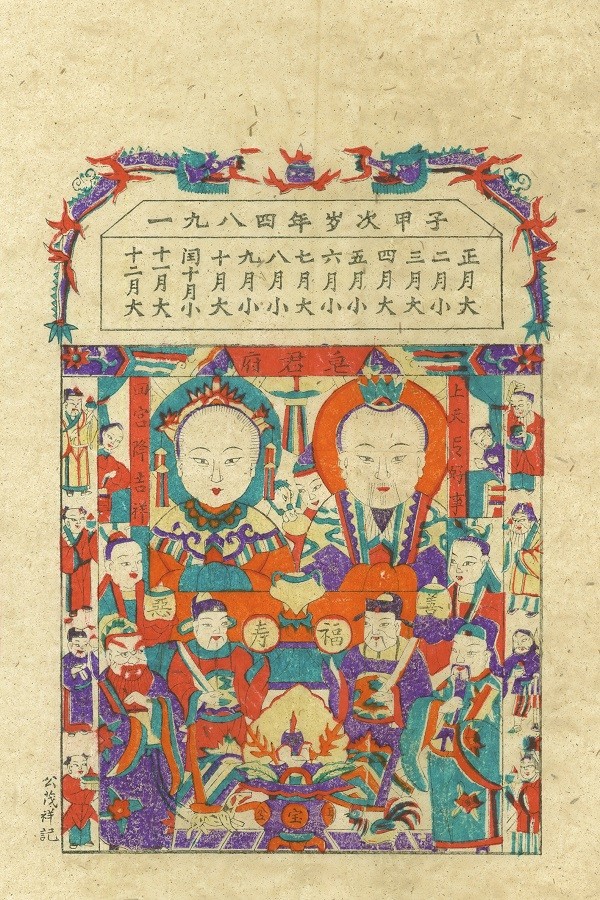 一九八四年岁次甲子
正月大
二月小
三月大
四月大
五月小
六月小
七月大
八月小
九月小
十月大
闰十月小
十一月大
十二月大
皂君府
上天言好事
回宫降吉祥
善
惡
福寿
宝
公茂祥記